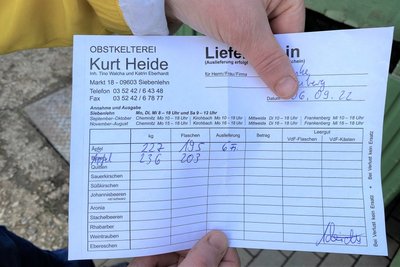 OBSTKELTEREI
Kurt Heide
Inh. Tino Walcha und Katrin Eberhardt
Markt 18 - 09603 Siebenlehn
Telefon 03 52 42 / 6 43 48
Fax 03 52 42 / 6 78 77
Liefe in
(Auslieferung erfolgt schein)
für Herrn/Frau/Firma
Datum 06.09.22
Annahme und Ausgabe
Siebenlehn Mo, Di, Mi 8 – 18 Uhr und Sa 9 – 13 Uhr
September-Oktober Chemnitz Mo 10 – 18 Uhr Krebsbach Mittweida Di 10 – 18 Uhr Frankenberg Mi 10 – 18 Uhr
November-August Chemnitz Mo Mittweida Frankenberg
kg Flaschen Auslieferung Betrag Leergut
VdF-Flaschen VdF-Kästen
Äpfel 227 195
236 203
Quitten
Sauerkirschen
Süßkirschen
Johannisbeeren
rot/schwarz
Aronia
Stachelbeeren
Rhabarber
Weintrauben
Ebereschen
Bei Verlust kein Ersatz
Bei Verlust kein Ersatz